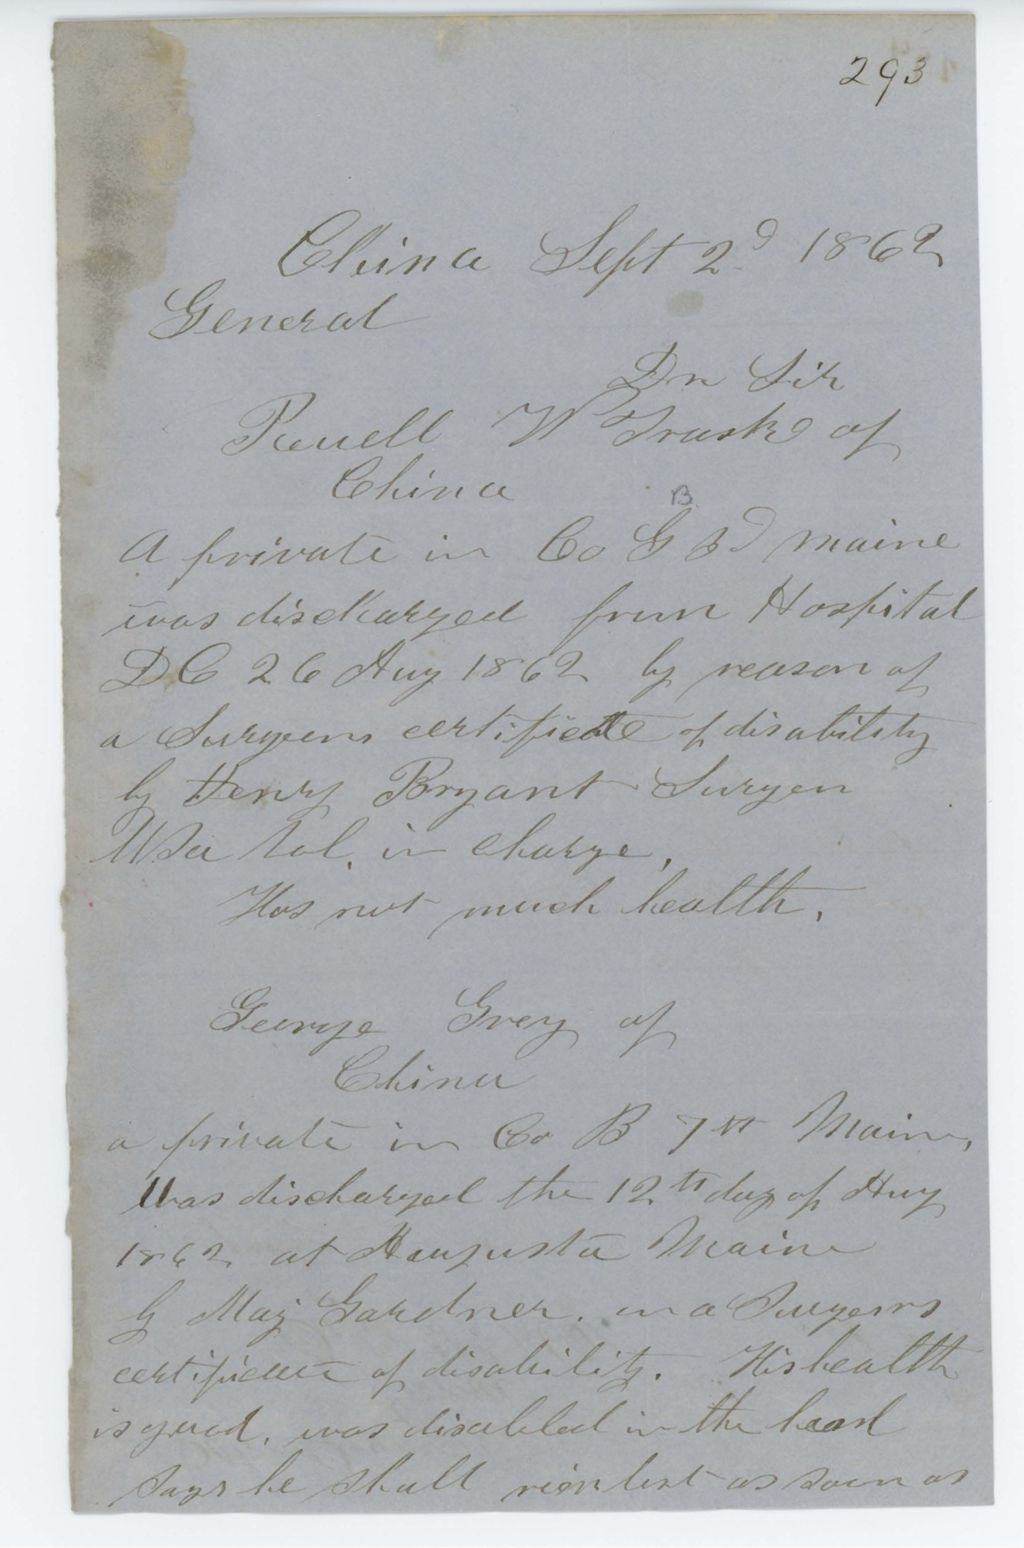 293
China Sept 2d 1862
General
Dr Sir
Reuell W Trask of
China
B
A private in Co G 3d maine
was discharged from Hospital
DC 26 Aug 1862 by reason of
a Surgeons certificate of disability
by Henry Bryant Surgen
Vol. in charge,
Has not much health,
George Grey of
China
a private in Co B 7th Maine,
Was discharged the 12th day of Aug
1862 at Haugusta Maine
by Maj Gardner. on a Surgeons
certificate of disability. His health
is good, was disabled in the hand
Says he shall reenlist as soon as